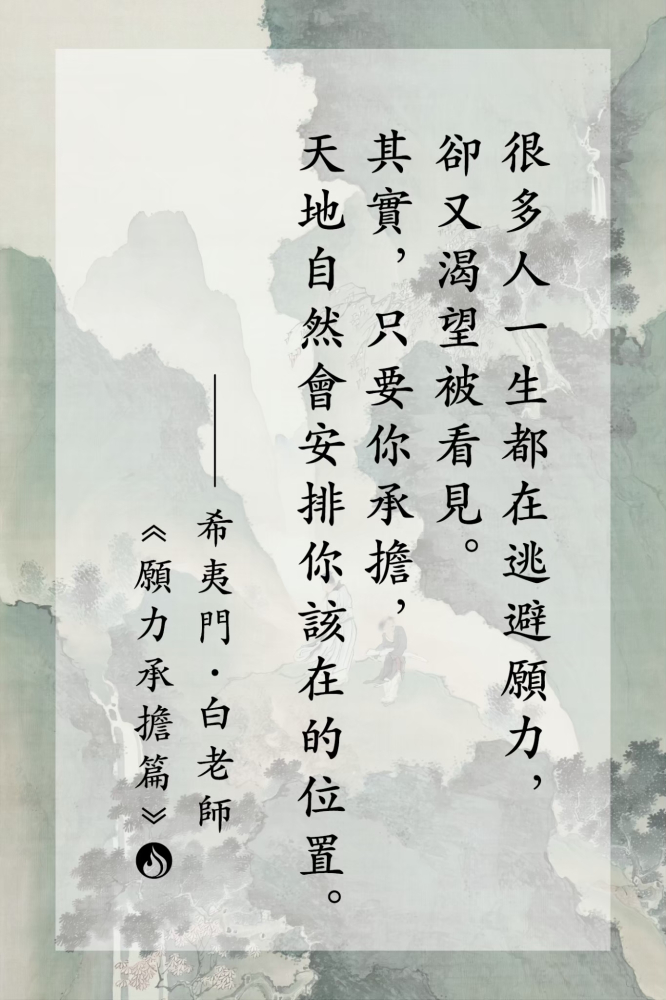 很多人一生都在逃避願力，
卻又渴望被看見。
其實，只要你承擔，
天地自然會安排你該在的位置。
——希夷門·白老師
《願力承擔篇》